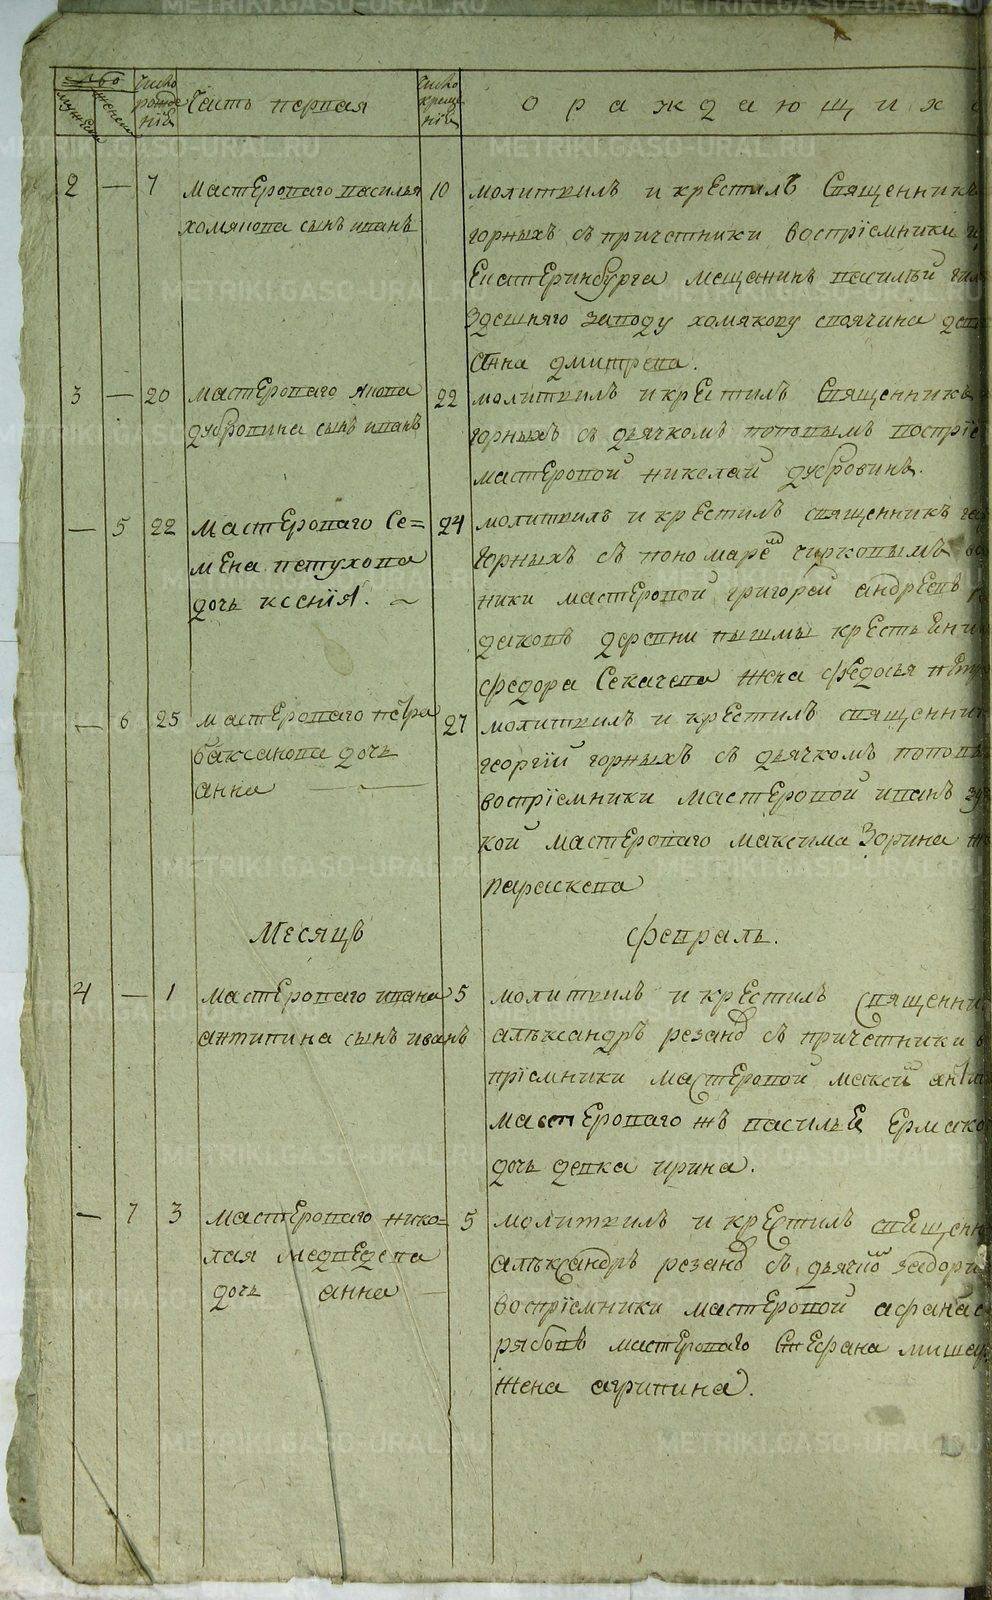 METRIKI.GASO-URAL.RU
число рожденiѣ
Часть первая
число крещенiѣ
о раждающихс
мужеска
женска
2 — 7
мастероваго василья
хомякова сынъ иванъ
10
молитвилъ и крестилъ Священникъ
горныхъ съ причетники воспрiемники
Екатеринбурга мещанинъ василiй
Здешняго заводу хомякову
Анна дмитрева.
3 — 20
мастероваго
дубровина сынъ иванъ
22
молитвилъ и крестилъ Священникъ
горныхъ съ дьячкомъ поповымъ воспрiе
мастеровой николай дубровинъ.
— 5 22
мастероваго Се=
мена петухова
дочь ксенiя.
24
молитвилъ и крестилъ священникъ ге
горныхъ съ пономаремъ чирковымъ во
ники мастеровой григорей андреевъ
деревни пышмы крестьЕни
федора Секачева жена федосья петр
— 6 25
мастероваго петра
баксанова дочь
анна
27
молитвилъ и крестилъ священник
георгiй горныхъ съ дьячкомъ попов
воспрiемники мастеровой иванъ
кой мастероваго максима Зорина ж
параскева
Месяцъ
февраль.
4 — 1
мастероваго ивана
антипина сынъ иванъ
5
молитвилъ и крестилъ священни
алѣксандръ резанов съ причетники в
прiемники мастеровой
мастероваго жъ василья Ермако
дочь девка ирина.
— 7 3
мастероваго нико=
лая медведева
дочь анна
5
молитвилъ и крестилъ свещенн
алѣксандръ резанов съ
воспрiемники мастеровой афанас
рябовъ мастероваго стефана
жена агрипина.